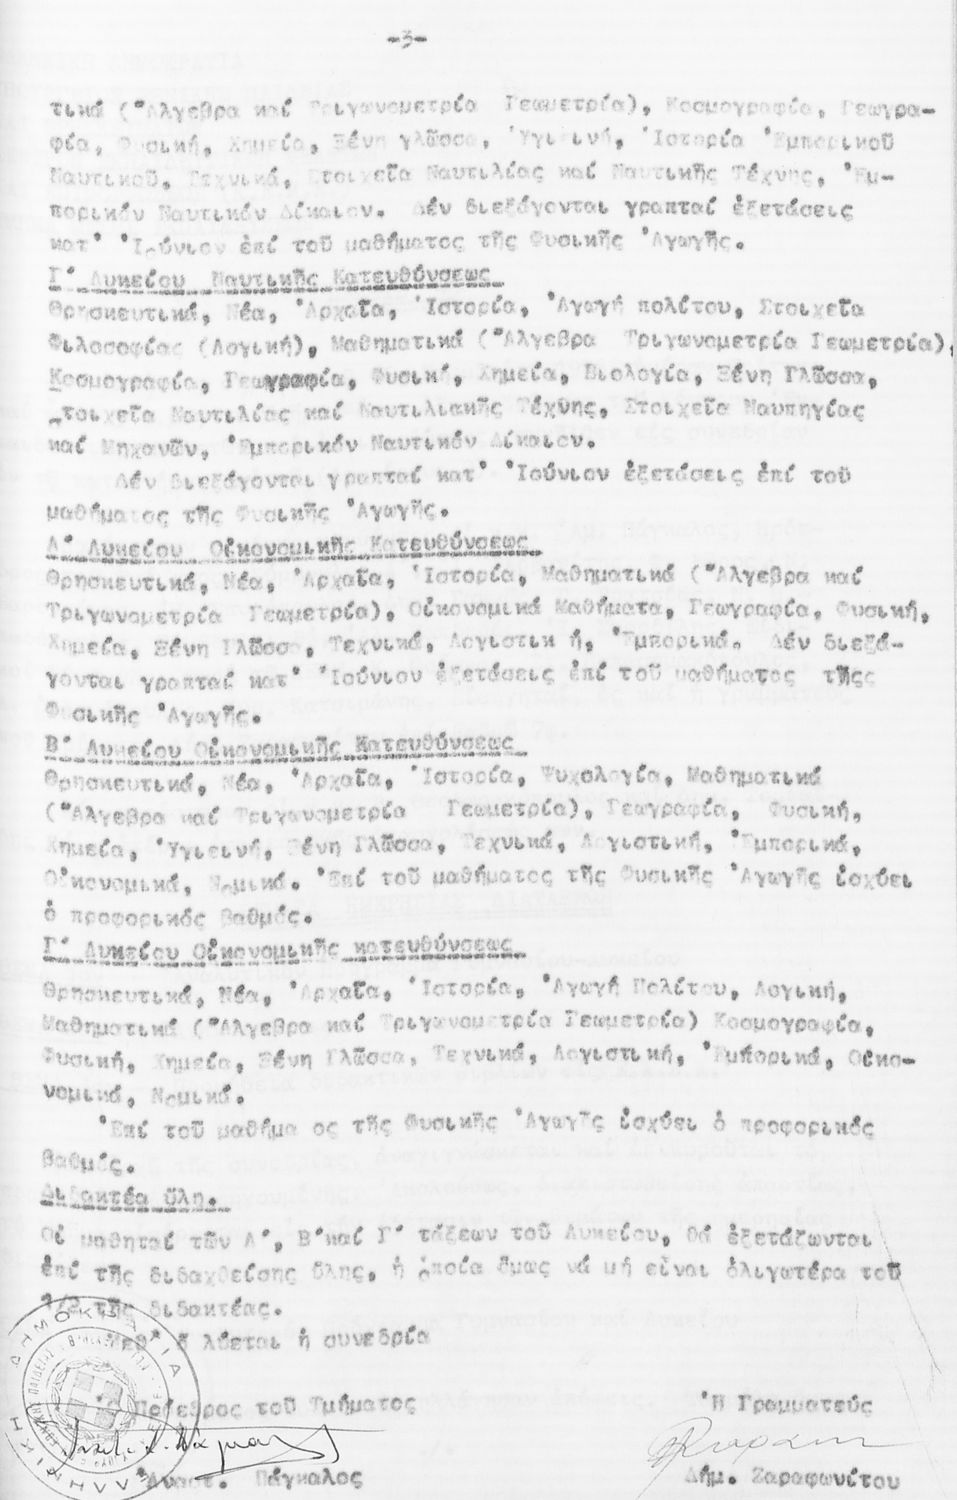 -3-
τικά (῎Αλγεβρα καί Τριγωνομετρία Γεωμετρία), Κοσμογραφία, Γεωγρα-
φία, Φυσική, Χημεία, Ξένη γλῶσσα, Ὑγιεινή, Ἱστορία Ἐμπορικοῦ
Ναυτικοῦ, Τεχνικά, Στοιχεῖα Ναυτιλίας καί Ναυτικῆς Τέχνης, Ἐμ-
πορικόν Ναυτικόν Δίκαιον. Δέν διεξάγονται γραπταί ἐξετάσεις
κατ' Ἰούνιον ἐπί τοῦ μαθήματος τῆς Φυσικῆς Ἀγωγῆς.
Γ' Λυκείου Ναυτικῆς Κατευθύνσεως
Θρησκευτικά, Νέα, Ἀρχαῖα, Ἱστορία, Ἀγωγή πολίτου, Στοιχεῖα
Φιλοσοφίας (Λογική), Μαθηματικά (῎Αλγεβρα Τριγωνομετρία Γεωμετρία),
Κοσμογραφία, Γεωγραφία, Φυσική, Χημεία, Βιολογία, Ξένη Γλῶσσα,
Στοιχεῖα Ναυτιλίας καί Ναυτιλιακῆς Τέχνης, Στοιχεῖα Ναυπηγίας
καί Μηχανῶν, Ἐμπορικόν Ναυτικόν Δίκαιον.
Δέν διεξάγονται γραπταί κατ' Ἰούνιον ἐξετάσεις ἐπί τοῦ
μαθήματος τῆς Φυσικῆς Ἀγωγῆς.
Α' Λυκείου Οἰκονομικῆς Κατευθύνσεως
Θρησκευτικά, Νέα, Ἀρχαῖα, Ἱστορία, Μαθηματικά (῎Αλγεβρα καί
Τριγωνομετρία Γεωμετρία), Οἰκονομικά Μαθήματα, Γεωγραφία, Φυσική,
Χημεία, Ξένη Γλῶσσα, Τεχνικά, Λογιστικ ή, Ἐμπορικά. Δέν διεξά-
γονται γραπταί κατ' Ἰούνιον ἐξετάσεις ἐπί τοῦ μαθήματος τῆς
Φυσικῆς Ἀγωγῆς.
Β' Λυκείου Οἰκονομικῆς Κατευθύνσεως
Θρησκευτικά, Νέα, Ἀρχαῖα, Ἱστορία, Ψυχολογία, Μαθηματικά
(῎Αλγεβρα καί Τριγωνομετρία Γεωμετρία), Γεωγραφία, Φυσική,
Χημεία, Ὑγιεινή, Ξένη Γλῶσσα, Τεχνικά, Λογιστική, Ἐμπορικά,
Οἰκονομικά, Νομικά. Ἐπί τοῦ μαθήματος τῆς Φυσικῆς Ἀγωγῆς ἰσχύει
ὁ προφορικός βαθμός.
Γ' Λυκείου Οἰκονομικῆς κατευθύνσεως
Θρησκευτικά, Νέα, Ἀρχαῖα, Ἱστορία, Ἀγωγή Πολίτου, Λογική,
Μαθηματικά (῎Αλγεβρα καί Τριγωνομετρία Γεωμετρία) Κοσμογραφία,
Φυσική, Χημεία, Ξένη Γλῶσσα, Τεχνικά, Λογιστική, Ἐμπορικά, Οἰκο-
νομικά, Νομικά.
Ἐπί τοῦ μαθήμα ος τῆς Φυσικῆς Ἀγωγῆς ἰσχύει ὁ προφορικός
βαθμός.
Διδακτέα ὕλη.
Οἱ μαθηταί τῶν Α', Β' καί Γ' τάξεων τοῦ Λυκείου, θά ἐξετάζωνται
ἐπί τῆς διδαχθείσης ὕλης, ἡ ὁποία ὅμως νά μή εἶναι ὀλιγωτέρα τοῦ
1/2 τῆς διδακτέας.
Μεθ' ὅ λύεται ἡ συνεδρία
Ὁ Πρόεδρος τοῦ Τμήματος Ἡ Γραμματεύς
Ἀναστ. Πάγκαλος Δήμ. Ζαραφωνίτου
ΕΛΛΗΝΙΚΗ ΔΗΜΟΚΡΑΤΙΑ